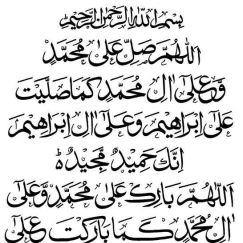 بِسْمِ اللهِ الرَّحْمٰنِ الرَّحِيْمِ
اَللّٰهُمَّ صَلِّ عَلىٰ مُحَمَّدٍ
وَّعَلىٰ اٰلِ مُحَمَّدٍ كَمَا صَلَّيْتَ
عَلىٰ اِبْرَاهِيْمَ وَعَلىٰ اٰلِ اِبْرَاهِيْمَ
اِنَّكَ حَمِيْدٌ مَّجِيْدٌ
اَللّٰهُمَّ بَارِكْ عَلىٰ مُحَمَّدٍ وَّعَلىٰ
اٰلِ مُحَمَّدٍ كَمَا بَارَكْتَ عَلىٰ